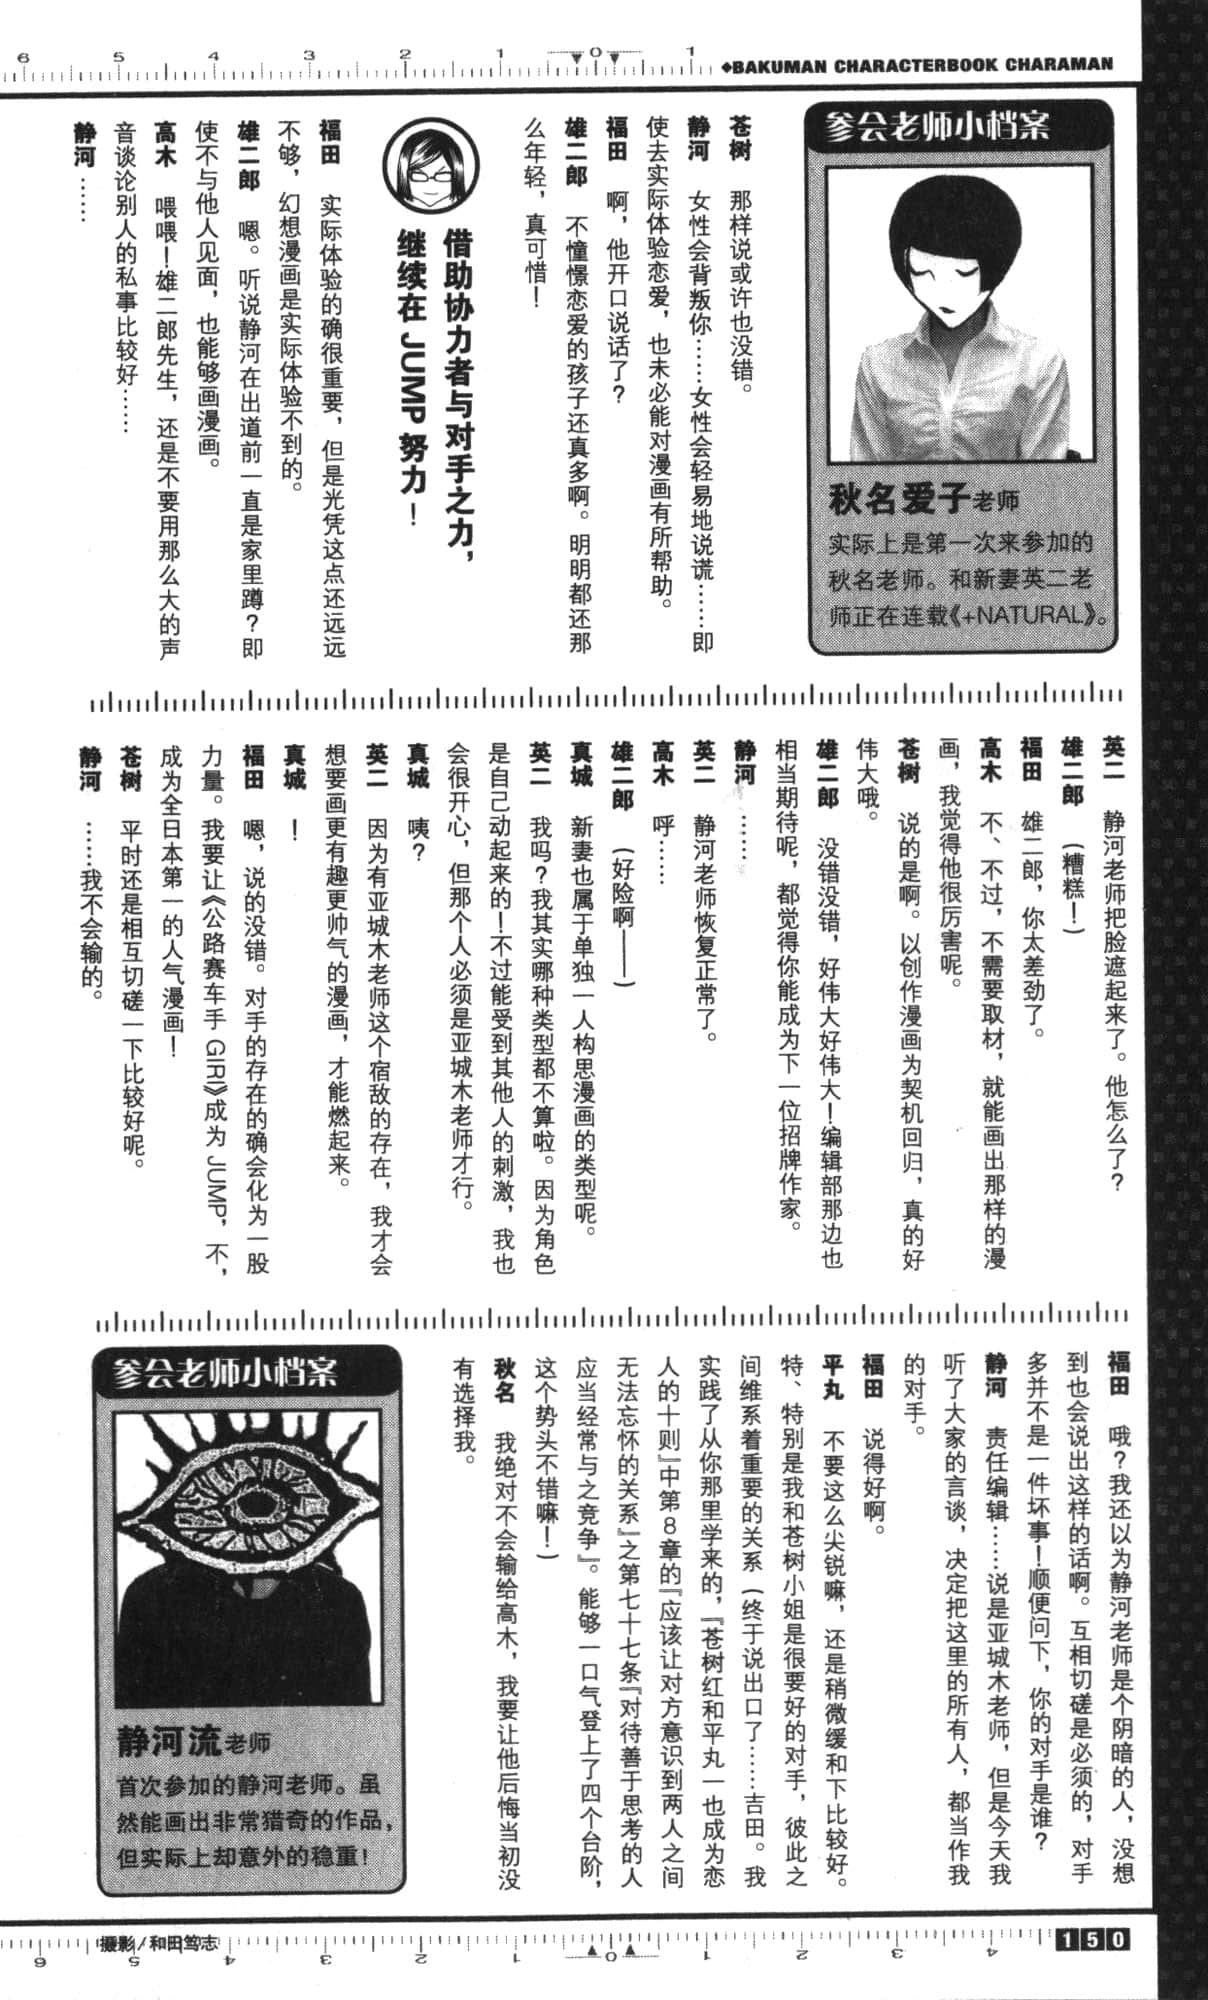 ◆BAKUMAN CHARACTERBOOK CHARAMAN
6 5 4 3 2 1 0 1
参会老师小档案
秋名爱子老师
实际上是第一次来参加的
秋名老师。和新妻英二老
师正在连载《+NATURAL》。
苍树　那样说或许也没错。
静河　女性会背叛你……女性会轻易地说谎……即
使去实际体验恋爱，也未必能对漫画有所帮助。
福田　啊，他开口说话了？
雄二郎　不憧憬恋爱的孩子还真多啊。明明都还那
么年轻，真可惜！
借助协力者与对手之力，
继续在 JUMP 努力！
福田　实际体验的确很重要，但是光凭这点还远远
不够，幻想漫画是实际体验不到的。
雄二郎　嗯。听说静河在出道前一直是家里蹲？即
使不与他人见面，也能够画漫画。
高木　喂喂！雄二郎先生，还是不要用那么大的声
音谈论别人的私事比较好……
静河　……
英二　静河老师把脸遮起来了。他怎么了？
雄二郎　（糟糕！）
福田　雄二郎，你太差劲了。
高木　不、不过，不需要取材，就能画出那样的漫
画，我觉得他很厉害呢。
苍树　说的是啊。以创作漫画为契机回归，真的好
伟大哦。
雄二郎　没错没错，好伟大好伟大！编辑部那边也
相当期待呢，都觉得你能成为下一位招牌作家。
静河　……
英二　静河老师恢复正常了。
高木　呼……
雄二郎　（好险啊——）
真城　新妻也属于单独一人构思漫画的类型呢。
英二　我吗？我其实哪种类型都不算啦。因为角色
是自己动起来的！不过能受到其他人的刺激，我也
会很开心，但那个人必须是亚城木老师才行。
真城　咦？
英二　因为有亚城木老师这个宿敌的存在，我才会
想要画更有趣更帅气的漫画，才能燃起来。
真城　！
福田　嗯，说的没错。对手的存在的确会化为一股
力量。我要让《公路赛车手 GIRI》成为 JUMP，不，
成为全日本第一的人气漫画！
苍树　平时还是相互切磋一下比较好呢。
静河　……我不会输的。
福田　哦？我还以为静河老师是个阴暗的人，没想
到也会说出这样的话啊。互相切磋是必须的，对手
多并不是一件坏事！顺便问下，你的对手是谁？
静河　责任编辑……说是亚城木老师，但是今天我
听了大家的言谈，决定把这里的所有人，都当作我
的对手。
福田　说得好啊。
平丸　不要这么尖锐嘛，还是稍微缓和下比较好。
特、特别是我和苍树小姐是很要好的对手，彼此之
间维系着重要的关系（终于说出口了……吉田。我
实践了从你那里学来的，『苍树红和平丸一也成为恋
人的十则』中第8章的『应该让对方意识到两人之间
无法忘怀的关系』之第七十七条『对待善于思考的人
应当经常与之竞争』。能够一口气登上了四个台阶，
这个势头不错嘛！）
秋名　我绝对不会输给高木，我要让他后悔当初没
有选择我。
参会老师小档案
静河流老师
首次参加的静河老师。虽
然能画出非常猎奇的作品，
但实际上却意外的稳重！
摄影/和田笃志
6 5 4 3 2 1 0 1 2 3 4
150